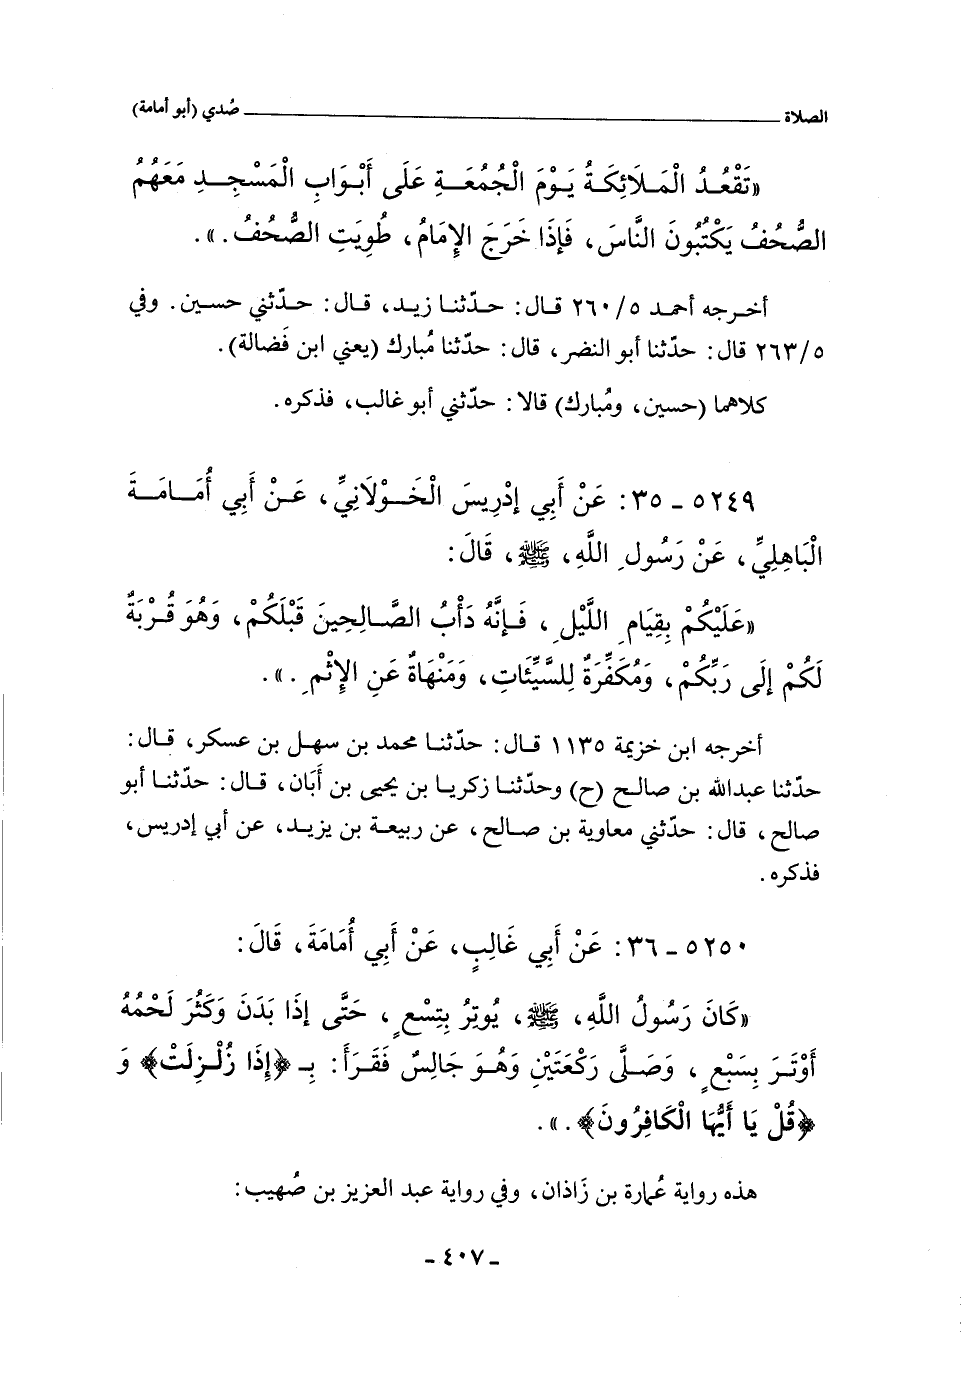 الصلاة ـــــ صُدي (أبو أمامة)
«تَقْعُدُ الْمَلَائِكَةُ يَوْمَ الْجُمُعَةِ عَلَى أَبْوَابِ الْمَسْجِدِ مَعَهُمُ
الصُّحُفُ يَكْتُبُونَ النَّاسَ، فَإِذَا خَرَجَ الإِمَامُ، طُوِيَتِ الصُّحُفُ.».
أخرجه أحمد ٢٦٠/٥ قال: حدّثنا زيد، قال: حدّثني حسين. وفي
٢٦٣/٥ قال: حدّثنا أبو النضر، قال: حدّثنا مُبارك (يعني ابن فَضالة).
كلاهما (حسين، ومُبارك) قالا: حدّثني أبو غالب، فذكره.
٥٢٤٩ - ٣٥: عَنْ أَبِي إِدْرِيسَ الْخَوْلَانِيِّ، عَنْ أَبِي أُمَامَةَ
الْبَاهِلِيِّ، عَنْ رَسُولِ اللَّهِ، ﷺ، قَالَ:
«عَلَيْكُمْ بِقِيَامِ اللَّيْلِ، فَإِنَّهُ دَأْبُ الصَّالِحِينَ قَبْلَكُمْ، وَهُوَ قُرْبَةٌ
لَكُمْ إِلَى رَبِّكُمْ، وَمُكَفِّرَةٌ لِلسَّيِّئَاتِ، وَمَنْهَاةٌ عَنِ الإِثْمِ.».
أخرجه ابن خزيمة ١١٣٥ قال: حدّثنا محمد بن سهل بن عسكر، قال:
حدّثنا عبدالله بن صالح (ح) وحدّثنا زكريا بن يحيى بن أَبَان، قال: حدّثنا أبو
صالح، قال: حدّثني معاوية بن صالح، عن ربيعة بن يزيد، عن أبي إدريس،
فذكره.
٥٢٥٠ - ٣٦: عَنْ أَبِي غَالِبٍ، عَنْ أَبِي أُمَامَةَ، قَالَ:
«كَانَ رَسُولُ اللَّهِ، ﷺ، يُوتِرُ بِتِسْعٍ، حَتَّى إِذَا بَدَنَ وَكَثُرَ لَحْمُهُ
أَوْتَرَ بِسَبْعٍ، وَصَلَّى رَكْعَتَيْنِ وَهُوَ جَالِسٌ فَقَرَأَ: بِـ ﴿إِذَا زُلْزِلَتْ﴾ وَ
﴿قُلْ يَا أَيُّهَا الْكَافِرُونَ﴾.».
هذه رواية عُمارة بن زَاذان، وفي رواية عبد العزيز بن صُهيب:
- ٤٠٧ -